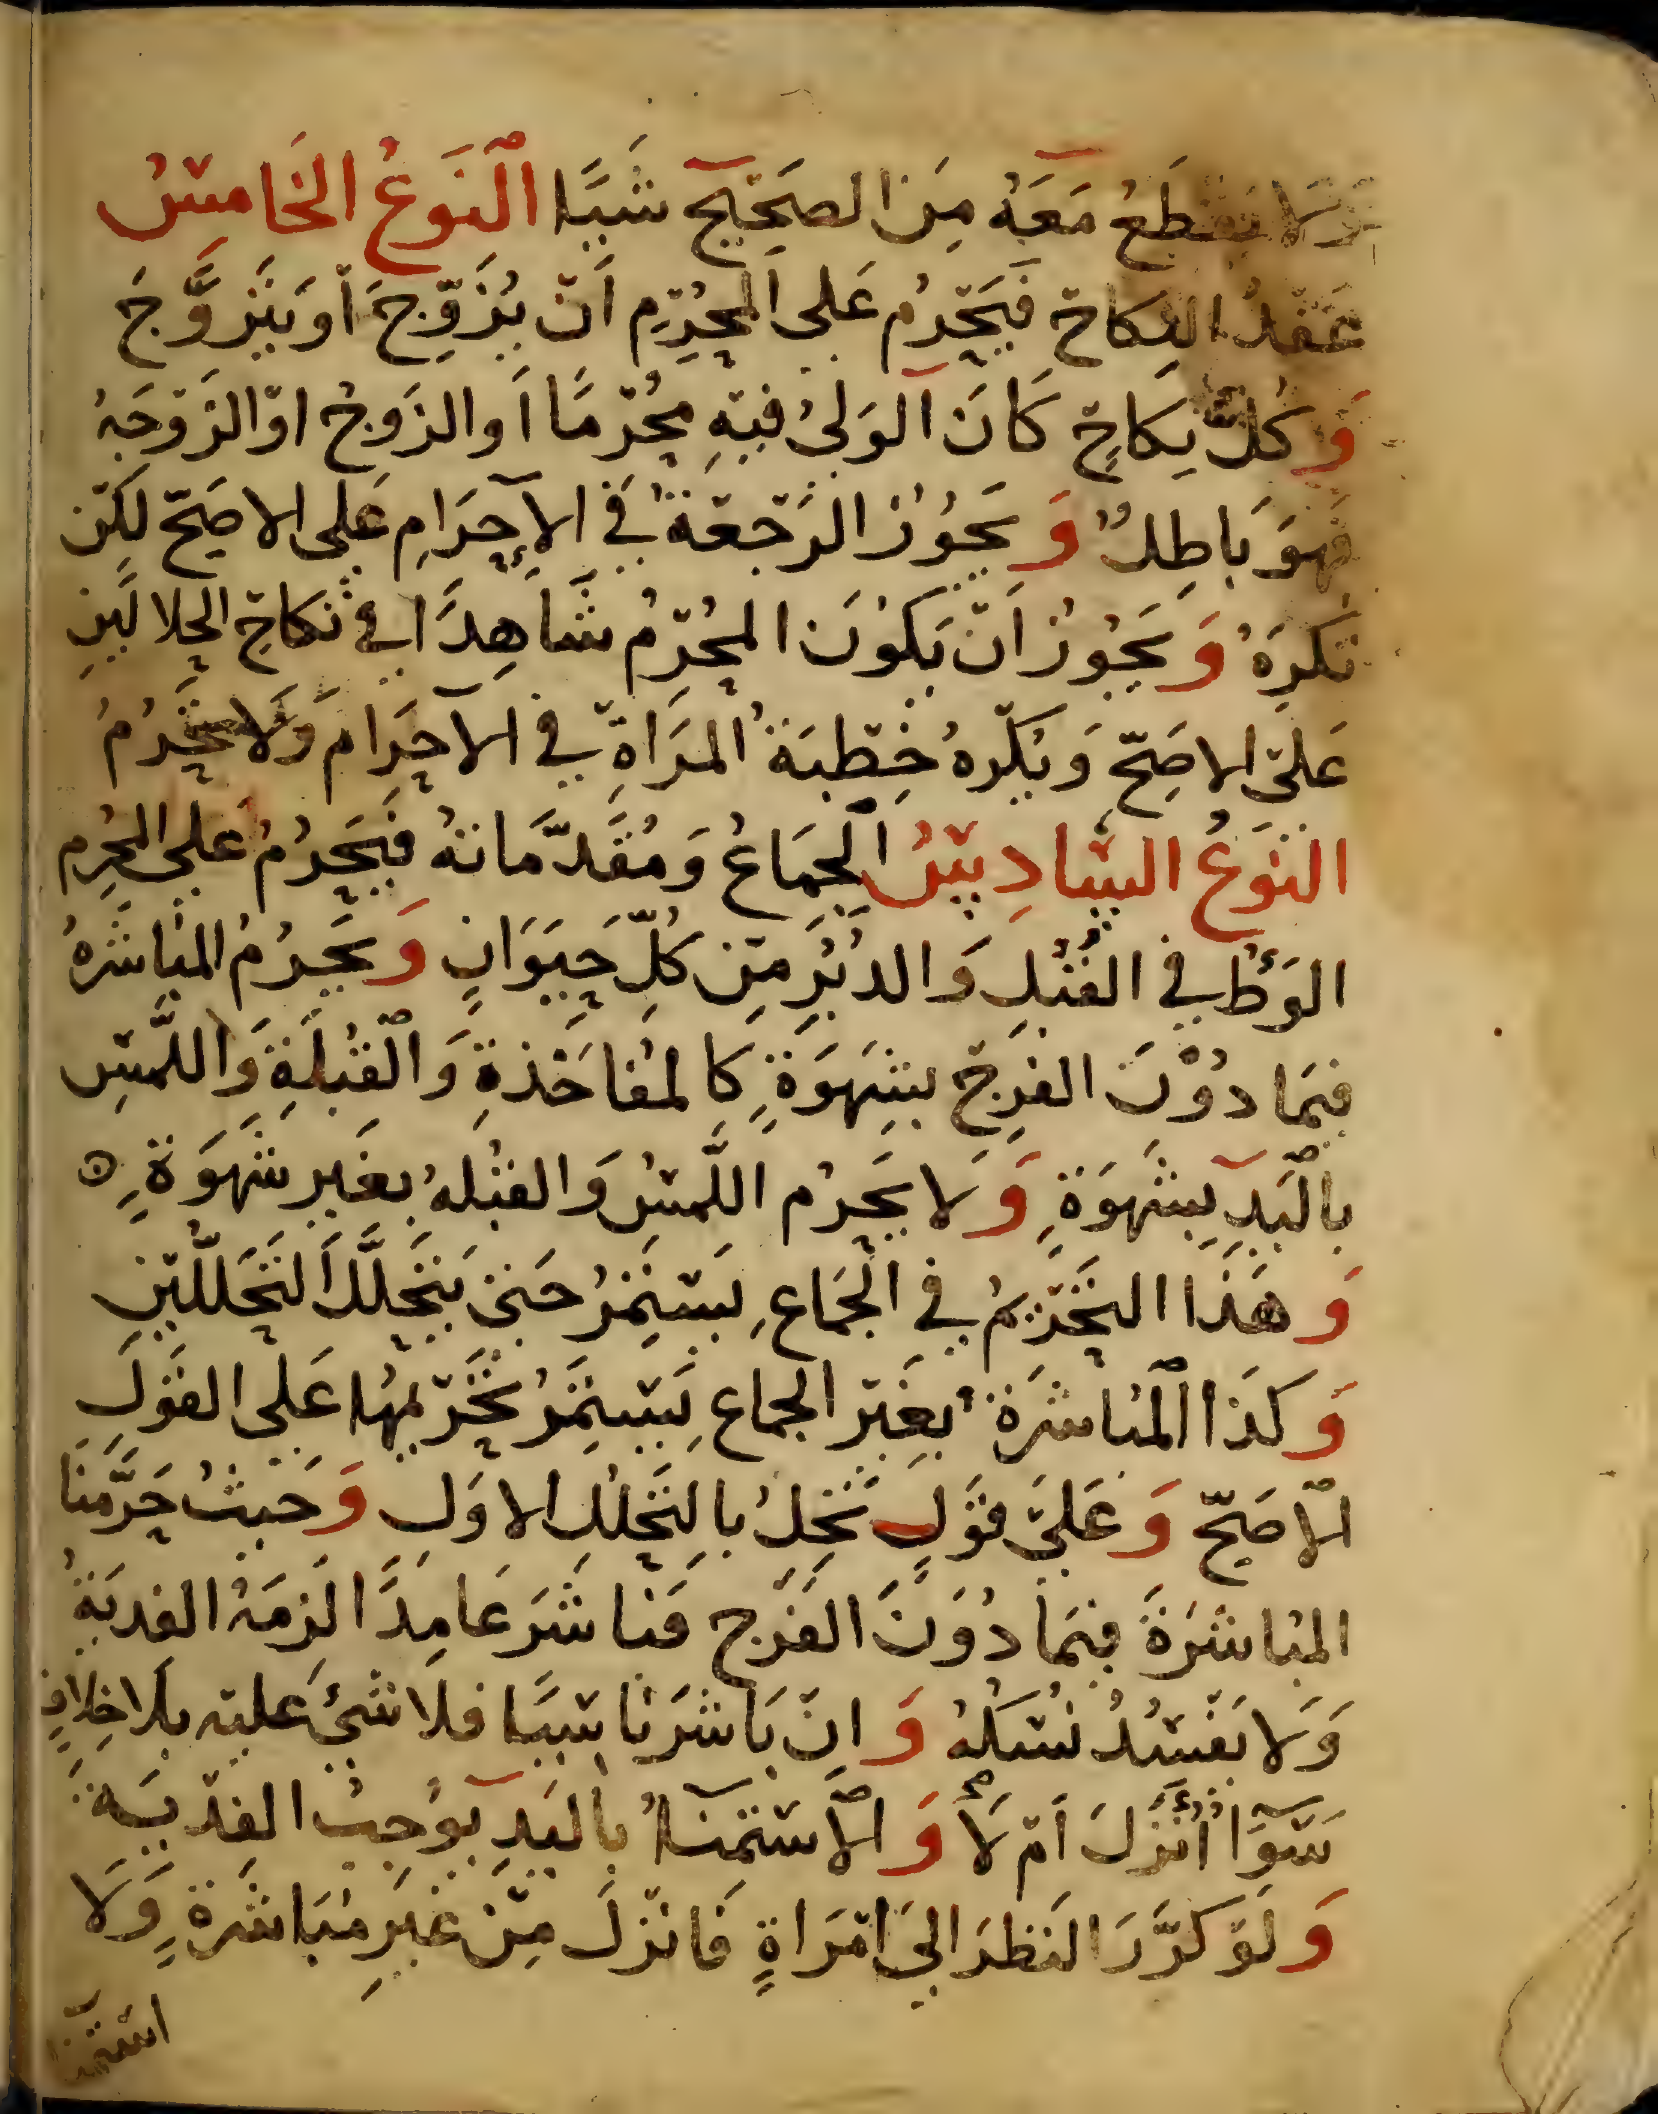 وَلَا يَقطَعُ مَعَهُ مِنَ الصَحِيحِ شَيًّا النَوعُ الخَامِسُ
عَقدُ النِكَاحِ فَيَحْرُمُ عَلى المُحْرِمِ اَنْ يُزَوِّجَ اَوْ يَتَزَوَّجَ
وَكُلُّ نِكَاحٍ كَانَ الوَلىُ فيهِ مُحْرِمًا اَو الزَوجُ اوْ الزَوْجَهُ
فَهوَ بَاطِلٌ وَ يَجُوزُ الرَجْعَةُ في الاِحرَامِ عَلى الاصَحّ لَكِن
تكرَهُ وَ يَجُوزُ اَنْ يَكوُنَ المُحْرِمُ شَاهِدًا في نكَاحِ الحِلالَينِ
عَلىَ الاصَحّ وَ يُكْرهُ خِطْبَةُ المَرَاةِ في الاحرَامِ وَلا تَحْرُمُ
النوَعُ السَادِسُ الجِمَاعُ وَمُقَدّمَاتهُ فَيَحرُمُ عَلى المُحرِم
الوَطْءُ في القُبُلِ وَ الدُبُرِ مِن كُلّ حَيَوَانٍ وَ يَحرُمُ المُبَاشَرةُ
فيمَا دُوْنَ الفَرجِ بشَهوَةٍ كَالمُفاخَذةِ وَ القُبْلَةِ وَاللَّمسِ
بِاليَدِ بِشَهوَةٍ وَ لا يَحرُم اللَّمسُ وَ القبُلهُ بِغَيرِ شَهوَةٍ ۞
وَهَذَا التَحْرِيمُ في الجِمَاعِ يَستَمِرُ حَتى يَتحَلَّلَ التَحَلُّلَينِ
وَ كَذَا المُبَاشَرَةُ بِغَيرِ الجماعِ يَستَمِرُ تَحْرِيمُهَا عَلى القَولِ
الاصَحّ وَ عَلىَ قوَلٍ تَحِلُ بالتَحَلُلِ الاوَلِ وَ حَيثُ حَرَّمنَا
المُبَاشَرَةَ فيمَا دُوَنَ الفَرجِ فَبَاشَرَ عَامِدًا لَزِمَهُ الفديَةُ
وَلا يَفسُدُ نُسُكهُ وَ انْ بَاشَرَ نَاسِيًا فلا شَئَ عَليْه بِلا خِلافٍ
سَوَاءً اَنْزَلَ اَمْ لَا وَ الاستمنَاءُ بِاليَدِ يوُجِبُ الفِدْيَةَ
وَ لَوْ كرَّرَ النَظرَ الىَ امْرَاةٍ فَانزَلَ مِنْ غَيرِ مُبَاشَرَةٍ وَلَا
استمنا